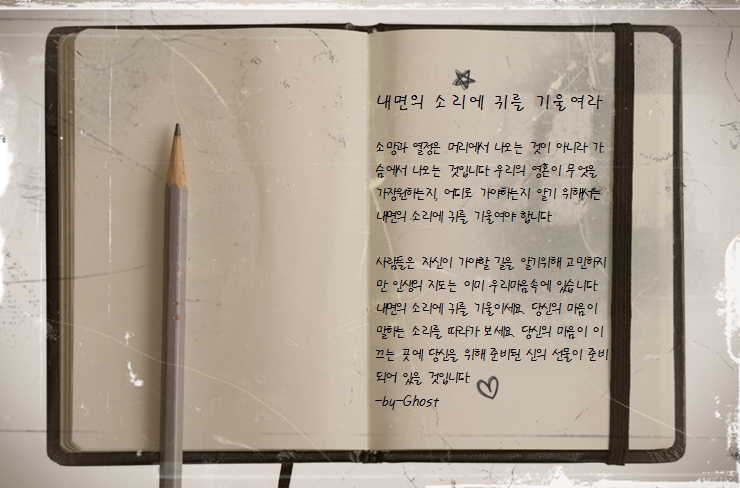 내면의 소리에 귀를 기울여라
소망과 열정은 머리에서 나오는 것이 아니라 가
슴에서 나오는 것입니다 우리의 영혼이 무엇을
가장원하는지, 어디로 가야하는지 알기 위해서는
내면의 소리에 귀를 기울여야 합니다
사람들은 자신이 가야할 길을 알기위해 고민하지
만 인생의 지도는 이미 우리마음속에 있습니다
내면의 소리에 귀를 기울이세요. 당신의 마음이
말하는 소리를 따라가 보세요. 당신의 마음이 이
끄는 곳에 당신을 위해 준비된 신의 선물이 준비
되어 있을 것입니다
-by-Ghost